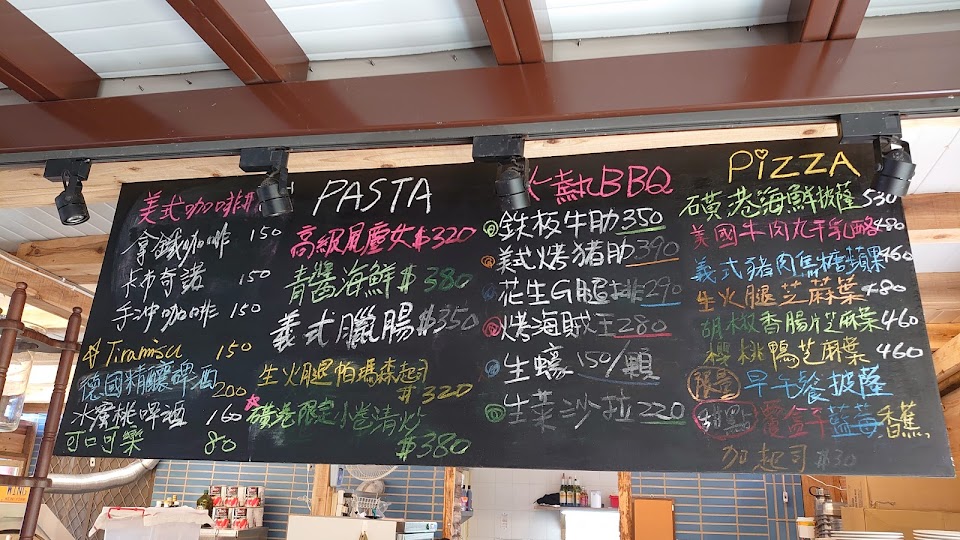 美式咖啡
拿鐵咖啡 150
卡布奇諾 150
手冲咖啡 150
Tiramisu 150
德國精釀啤酒 200
水蜜桃啤酒 160
可口可樂 80
PASTA
高級風塵女$320
青醬海鮮$380
義式臘腸$350
生火腿帕瑪森起司
$320
磺港限定小卷清炒
$380
火熱BBQ
鉄板牛肋350
美式烤豬肋390
花生G腿排290
烤海賊王280
生蠔150/顆
生菜沙拉220
PIZZA
磺港海鮮披薩530
美國牛肉丸干乳酪480
義式豬肉馬糖蘋果460
生火腿芝麻葉480
胡椒香腸片芝麻葉460
櫻桃鴨芝麻葉460
限量 早午餐披薩
甜點 覆盆子藍莓香蕉
加起司$30